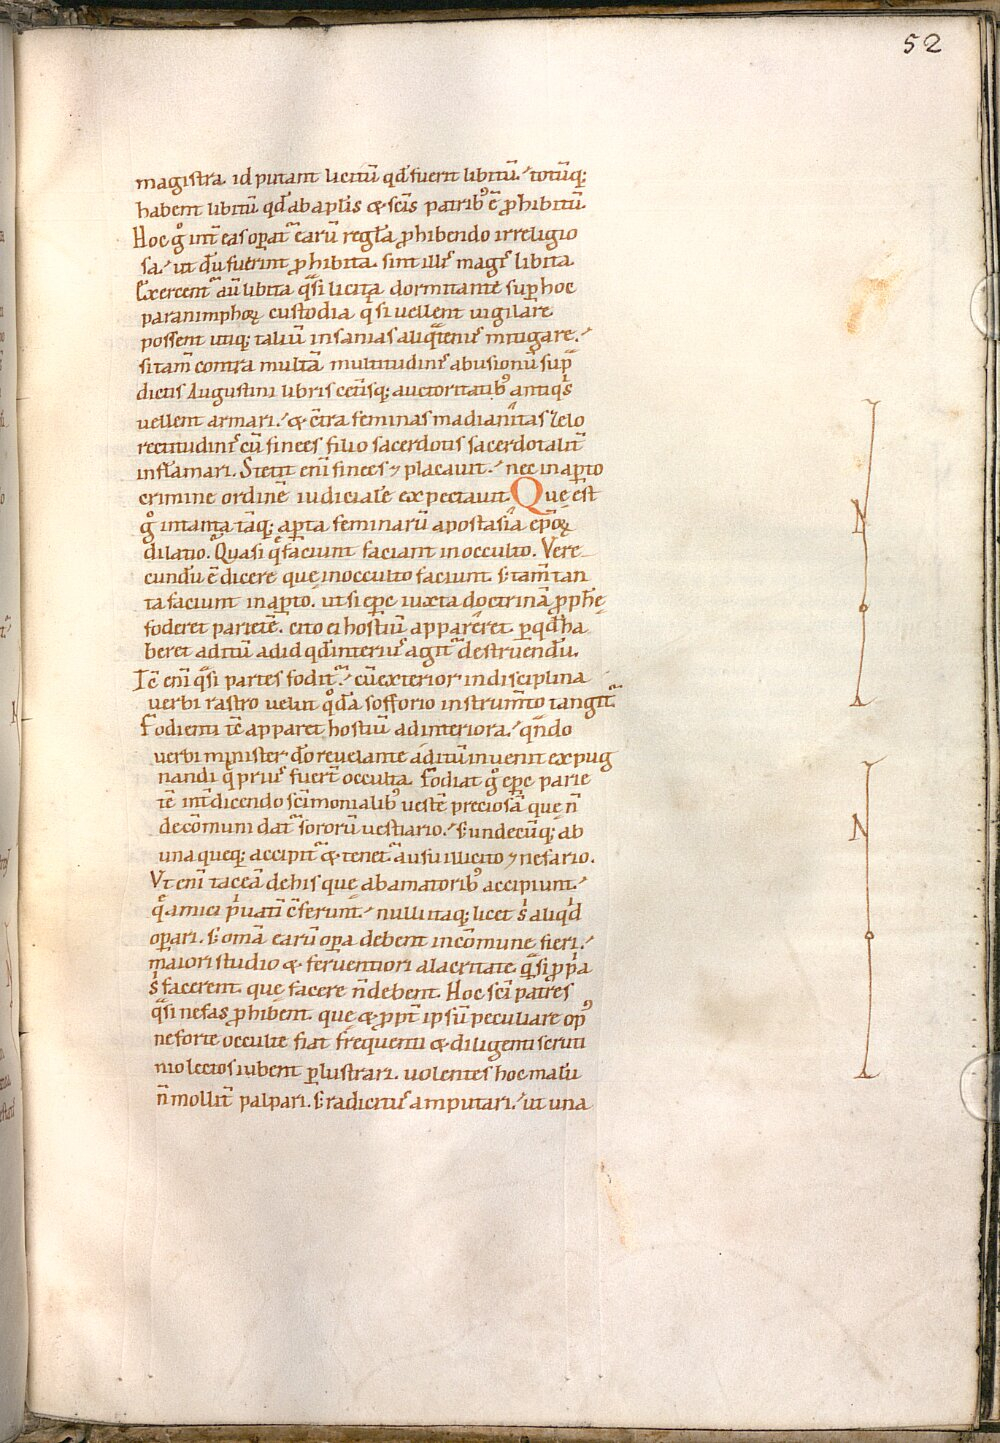 52
magistra. id putant licitū qd̄ fuerit libitū. totūq;
habent libitū qd̄ ab aplīs & scīs patribꝰ ē ꝓhibitū.
Hoc g̊ int̄ eas oꝑat᷑ earū regl̄a ꝓhibendo irreligio
sa. ut dū fuerint ꝓhibita. sint illiꝰ magiꝰ libita.
Exercent᷑ aū libita q̄si licita dormitante suꝑ hoc
paranimphoꝝ custodia. q si vellent uigilare
possent utiq; taliū insanias aliq̄tenuꝰ mitigare.
si tam̄ contra multā multitudinē abusionū sup̄
dictis Augustini libris cet̄isq; auctoritatibꝰ antiqͥs
uellent armari. & c̄tra feminas madianitas zelo
rectitudiniꝰ cū finees filio sacerdotis sacerdotalit̄
inflamari. Stetit enī finees ⁊ placauit. nec in aꝑto
crimine ordinē iudiciale expectauit. Quę est
g̊ in tanta tāq; aꝑta feminarū apostasia eꝑoꝝ
dilatio. Quasi q̄ faciunt faciant in occulto. Vere
cundū ē dicere quę in occulto faciunt. s; tam̄ tan
ta faciunt in aꝑto. ut si epc̄ iuxta doctrinā ꝓphe
foderet parietē. cito ei hostiū appareret. ꝑ qd̄ ha
beret aditū ad id qd̄ interiuꝰ agit᷑ destruendū.
Tc̄ enī q̄si paries fodit᷑. cū exterior indisciplina
verbi rastro uelut qͦdā fossorio instrum̄to tangit᷑.
Fodienti tc̄ apparet hostiū ad interiora. qn̄do
verbi minister dō reuelante aditū inuenit expug
nandi q̄ priuꝰ fuer̄t occulta. Fodiat g̊ epc̄ parie
tē int̄dicendo scīmonialibꝰ uestē preciosā quę n̄
de cōmuni dat᷑ sororū uestiario. s; undecūq; ab
una queq; accipit᷑ & tenet᷑ ausu illicito ⁊ nefario.
Vt enī taceā de his quę ab amatoribꝰ accipiunt.
q̄ amici pͥuati c̄ferunt. nulli itaq; licet sͥ aliqͥd
oꝑari. s; om̄a earū oꝑa debent in cōmune fieri.
maiori studio & feruentiori alacritate. q̄ si ꝓpͥa
sͥ facerent. quę facere n̄ debent. Hoc scī patres
q̄si nefas ꝓhibent. quę & ꝓpt̄ ipsū peculiare opꝰ
ne forte occulte fiat frequenti & diligenti scruti
nio lectos iubent ꝑlustrari. uolentes hoc malū
n̄ mollit̄ palpari. s; radicituꝰ amputari. ut una
N
N